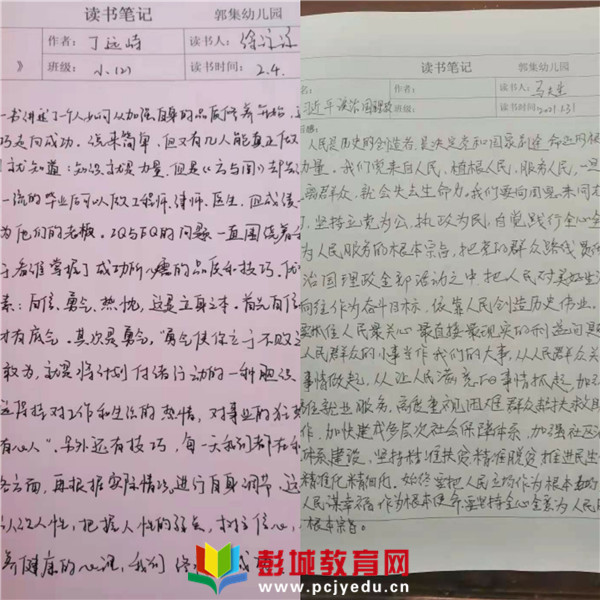 读书笔记 郭集幼儿园
作者：丁远峙 读书人：
》 班级：小（2） 读书时间：2.4.
一书讲述了一个人如何从加强自身的品质修养开始，
巧走向成功。说来简单，但又有几人能真正做
就知道：知识就是力量，但是《方与圆》却
一流的毕业后可以做工程师、律师、医生，但成绩一
为他们的老板。IQ与EQ的问题一直围绕着
于看谁掌握了成功所必需的品质和技巧。
素：自信、勇气、热忱，这是立身之本。首先自信
才有底气。其次是勇气，“勇气使你立于不败之
敢为，就是将计划付诸行动的一种胆识
这段持对工作和生活的热情，对事业的狂热
有心人”。另外还有技巧，每一天我们都在和
各方面，再根据实际情况进行自身调节，这
认识人性，把握人性的弱点，树立信心，
养健康的心理，我们
读书笔记 郭集幼儿园
名： 作者： 读书人：
习近平谈治国理政 班级： 读书时间：2021.3.1
感：
人民是历史的创造者，是决定党和国家前途命运的根
力量。我们党来自人民、植根人民、服务人民，一旦
离群众，就会失去生命力。我们要向周恩来同志
，坚持立党为公、执政为民，自觉践行全心全
为人民服务的根本宗旨，把党的群众路线贯彻
治国理政全部活动之中，把人民对美好生活
向往作为奋斗目标，依靠人民创造历史伟业。
要抓住人民最关心最直接最现实的利益问题
人民群众的小事当作我们的大事，从人民群众关
事情做起，从让人民满意的事情抓起，加强
住就业服务，高度重视困难群众帮扶救助
作，加快建成多层次社会保障体系，加强社区治
体系建设，坚持精准扶贫精准脱贫，推进民生
精准化精细内，始终要把人民立场作为根本立场
人民谋幸福作为根本使命，要坚持全心全意为人民服
根本宗旨。
彭城教育网
www.pcjyedu.cn